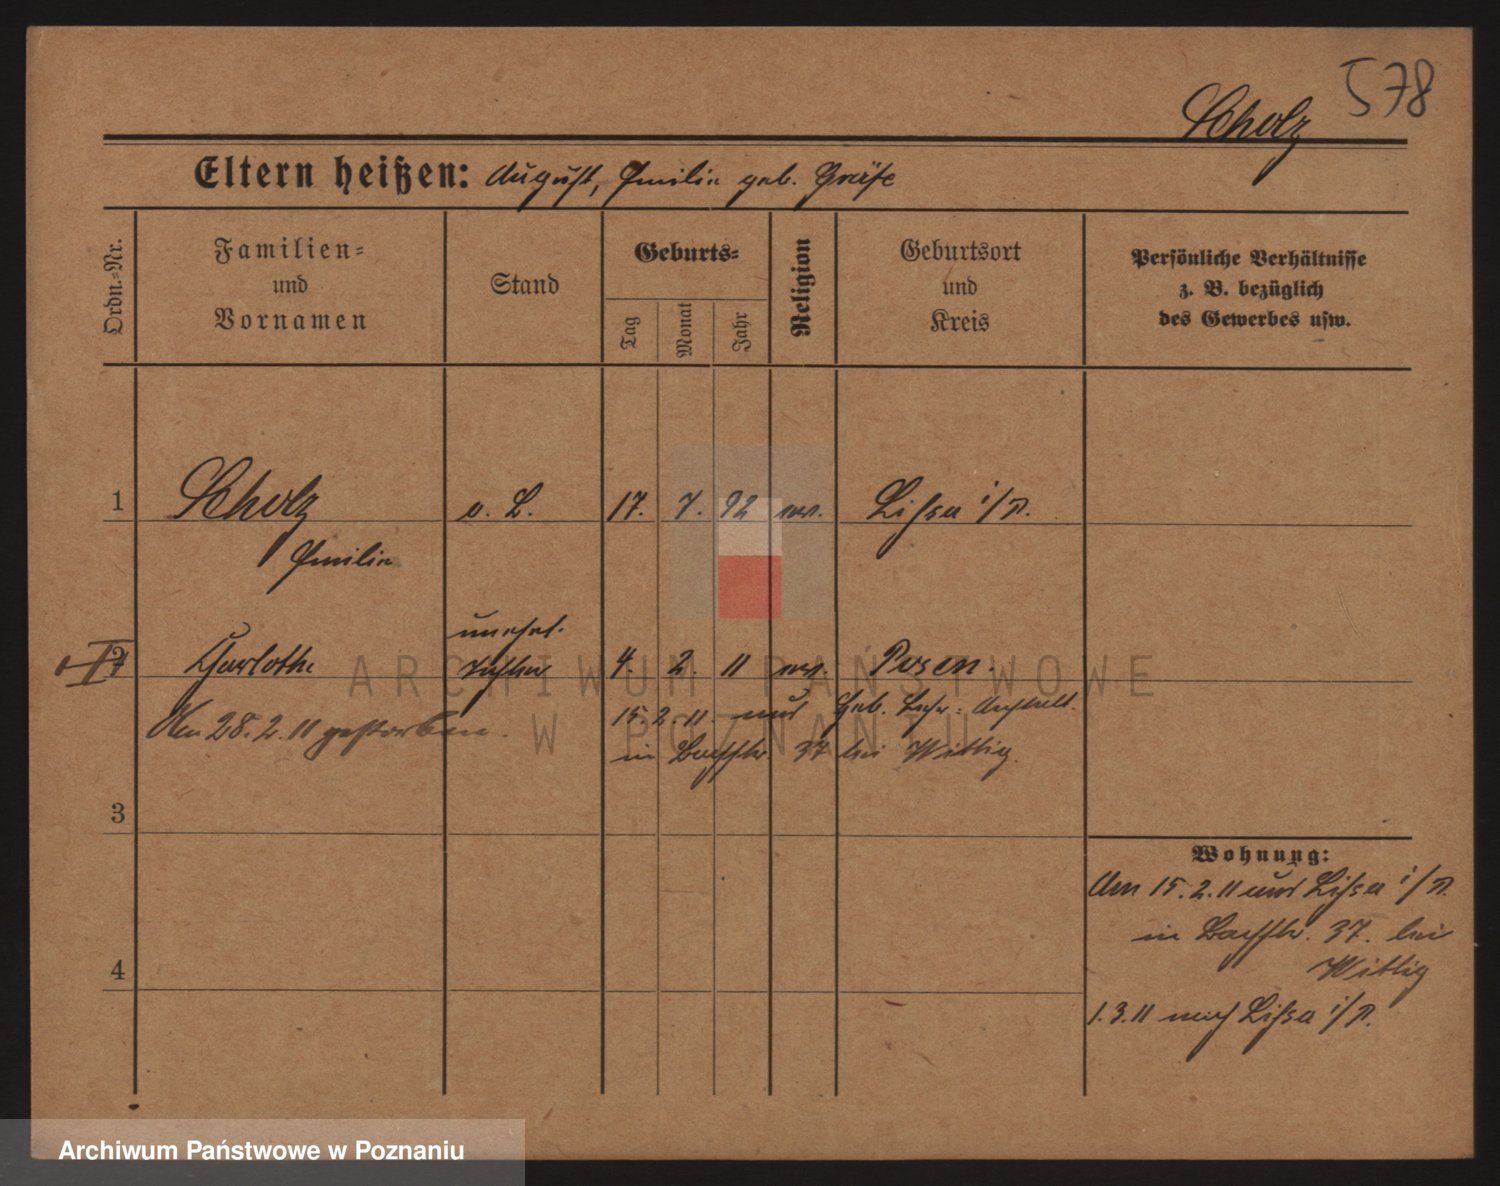 578
Scholz
Eltern heißen: August, Emilie geb. Gräfe
Ordn.=Nr.
Familien=
und
Vornamen
Stand
Geburts=
Tag
Monat
Jahr
Religion
Geburtsort
und
Kreis
Persönliche Verhältnisse
z. B. bezüglich
des Gewerbes usw.
1 Scholz o. B. 17. 7. 92 ev. Lissa i/P.
Emilie
unehel.
2 Charlotte Tochter 4. 2. 11 ev. Posen.
Am 28.2.11 gestorben.
15.2.11. aus Heb. Lehr=Anstalt.
in Bachstr. 37 bei Wittig.
3
4
Wohnung:
Am 15.2.11 aus Lissa i/P.
in Bachstr. 37. bei
Wittig
1.3.11 nach Lissa i/P.
ARCHIWUM PAŃSTWOWE
W POZNANIU
Archiwum Państwowe w Poznaniu